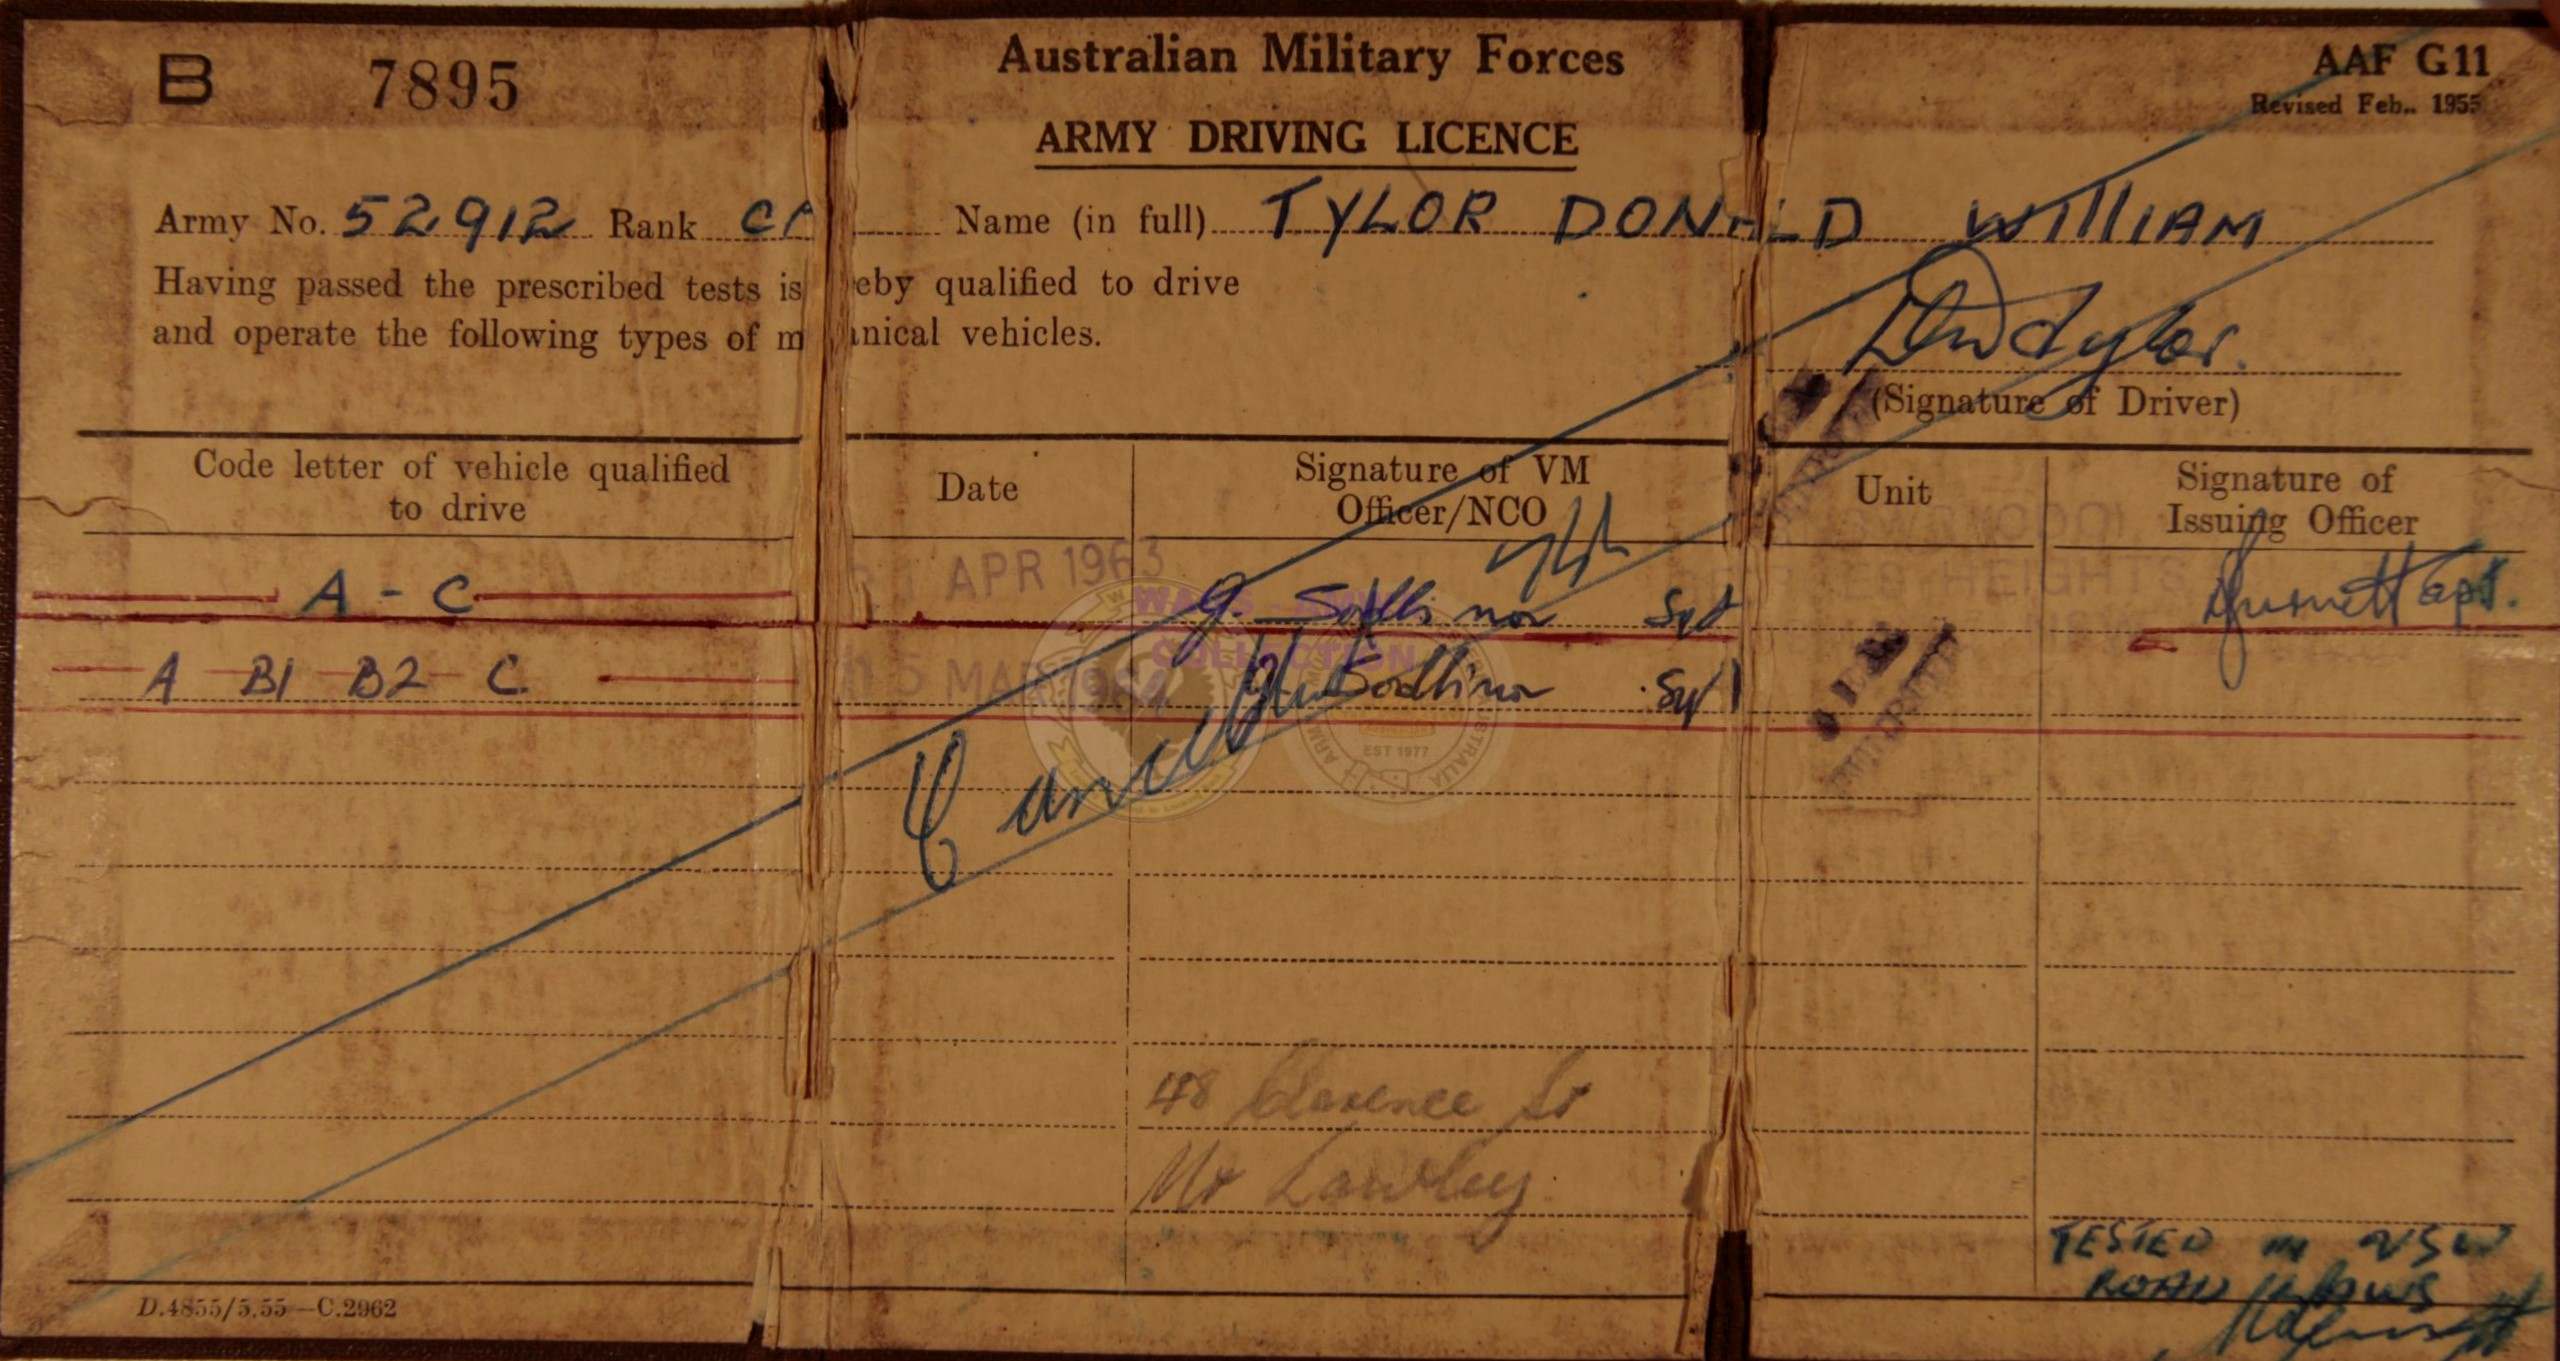 B 7895 Australian Military Forces AAF G11
Revised Feb., 1955
ARMY DRIVING LICENCE
Army No. 52912 Rank Name (in full) TYLOR DONALD WILLIAM
Having passed the prescribed tests is eby qualified to drive
and operate the following types of m anical vehicles.
DW Tylor.
(Signature of Driver)
Code letter of vehicle qualified to drive
Date
Signature of VM Officer/NCO
Unit
Signature of Issuing Officer
A - C APR 1963 Sgt Capt.
A B1 B2 C 5 MAR 1964 Sgt
WAGS
COLLECTION
EST 1977
Cancelled
48 Clarence St
Mt Lawley
TESTED IN NSW
ROAD LAWS
D.4855/5.55—C.2962